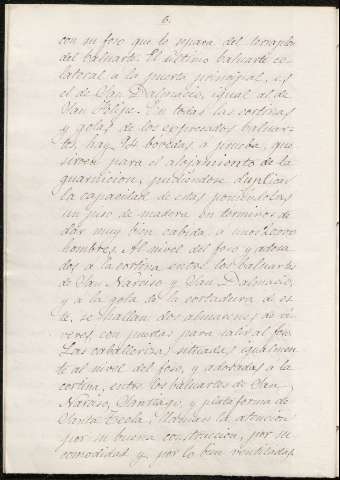 6.
con su foso que lo separa del terraplen
del baluarte. El último baluarte co-
lateral à la puerta principal, es
el de San Dalmacio, igual al de
San Felipe. En todas las cortinas
y golas de los expresados baluar-
tes, hay 94 bóvedas á prueba, que
sirven para el alojamiento de la
guarnicion, pudiéndose duplicar
la capacidad de estas poniéndolas
un piso de madera en terminos de
dar muy bien cabida à
hombres. Al nivel del foso y adosa-
dos a la cortina entre los baluartes
de San Narciso y San Dalmacio,
y à la gola de la cortadura de es-
te, se hallan dos almacenes de vi-
veres, con puertas para salir al foso.
Las caballerizas, situadas igualmen-
te al nivel del foso, y adosadas à la
cortina, entre los baluartes de San
Narciso, Santiago, y plataforma de
Santa Tecla, llaman la atencion
por su buena construccion, por su
comodidad y por lo bien ventiladas,